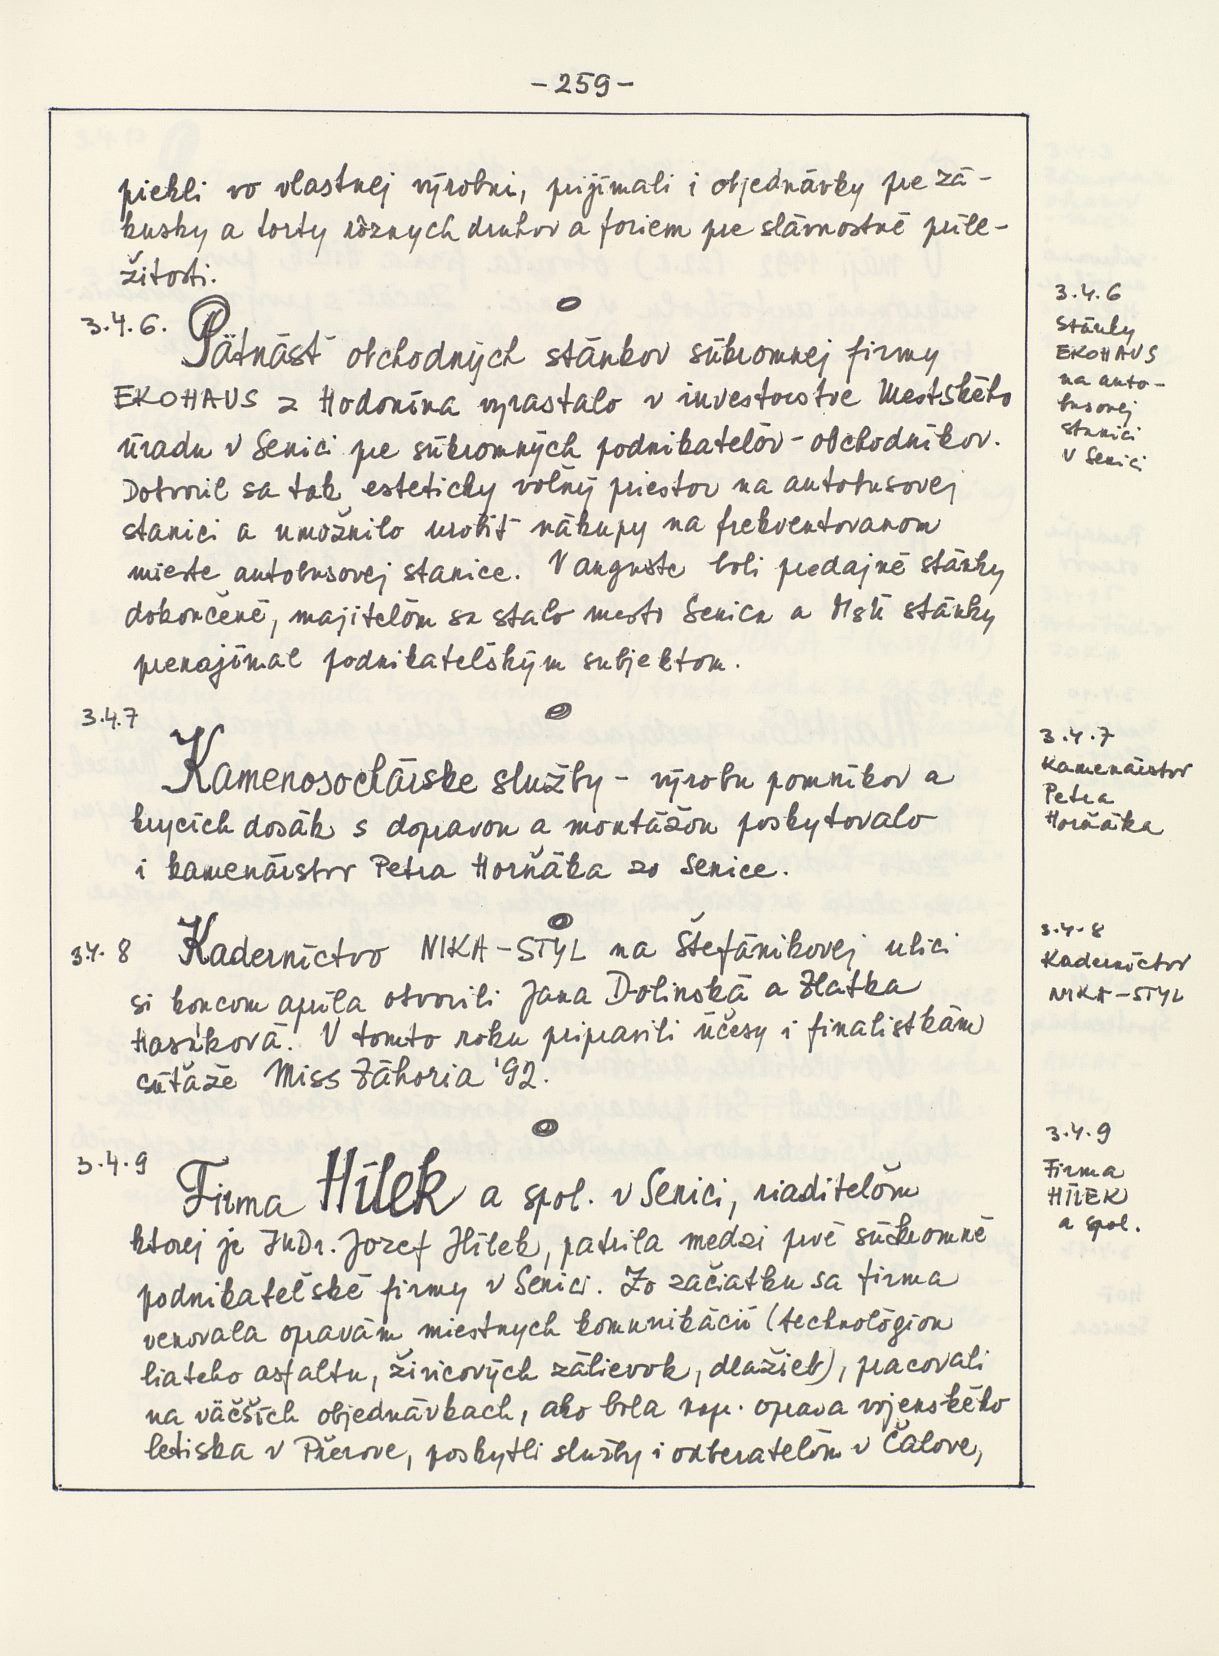 - 259 -
piekli vo vlastnej výrobni, prijímali i objednávky pre zá-
kusky a torty rôznych druhov a foriem pre slávnostné príle-
žitosti.
3.4.6. Pätnásť obchodných stánkov súkromnej firmy
EKOHAUS z Hodonína vyrastalo v investorstve Mestského
úradu v Senici pre súkromných podnikateľov - obchodníkov.
Dotvoril sa tak esteticky voľný priestor na autobusovej
stanici a umožnilo urobiť nákupy na frekventovanom
mieste autobusovej stanice. V auguste boli predajné stánky
dokončené, majiteľom sa stalo mesto Senica a MsÚ stánky
prenajímal podnikateľským subjektom.
3.4.6
Stánky
EKOHAUS
na auto-
busovej
stanici
v Senici
3.4.7
Kamenosochárske služby - výrobu pomníkov a
krycích dosák s dopravou a montážou poskytovalo
i kamenárstvo Petra Horňáka zo Senice.
3.4.7
Kamenárstvo
Petra
Horňáka
3.4.8 Kaderníctvo NIKA-STYL na Štefánikovej ulici
si koncom apríla otvorili Jana Dolinská a Zlatka
Hasíková. V tomto roku pripravili účesy i finalistkám
súťaže Miss Záhoria '92.
3.4.8
Kaderníctvo
NIKA-STYL
3.4.9 Firma Hílek a spol. v Senici, riaditeľom
ktorej je JuDr. Jozef Hílek, patrila medzi prvé súkromné
podnikateľské firmy v Senici. Zo začiatku sa firma
venovala opravám miestnych komunikácií (technológiou
liateho asfaltu, živicových zálievok, dlažieb), pracovali
na väčších objednávkach, ako bola nap. oprava vojenského
letiska v Přerove, poskytli služby i odberateľom v Čalove,
3.4.9
Firma
HÍLEK
a spol.